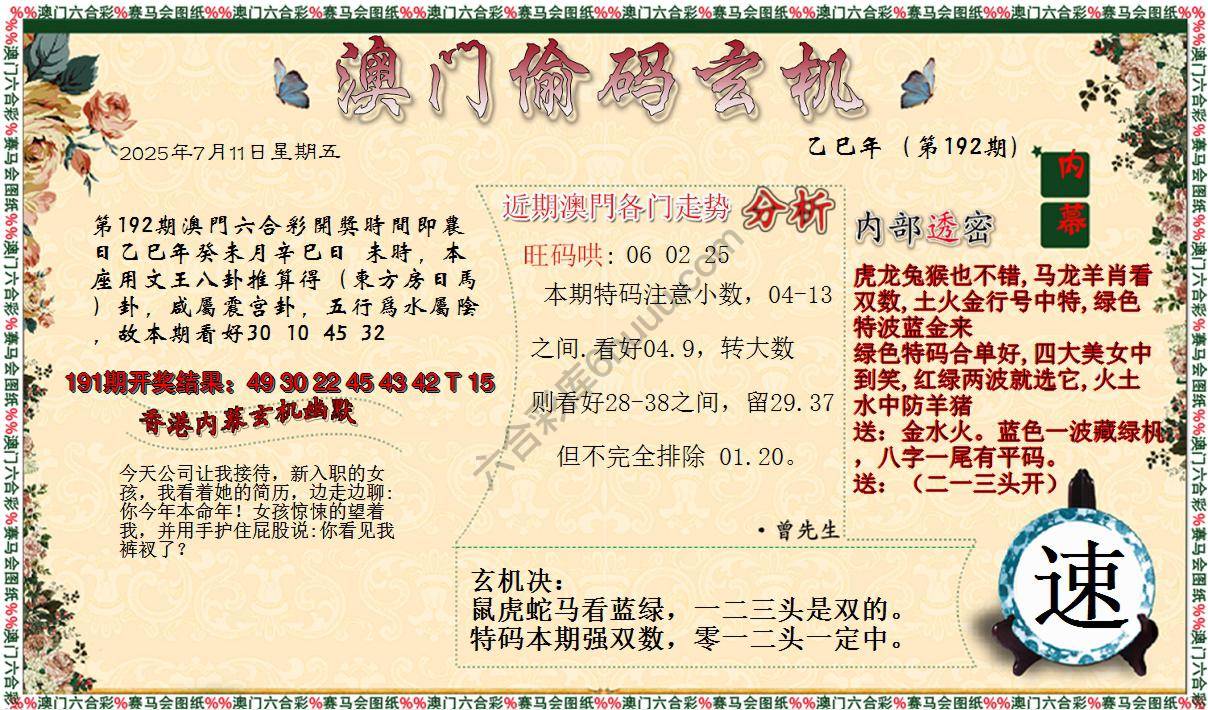 %%澳门六合彩%赛马会图纸%%澳门六合彩%赛马会图纸%%澳门六合彩%赛马会图纸%%澳门六合彩%赛马会图纸%%澳门六合彩%赛马会图纸%%澳门六合彩%赛马会图纸%%
澳门偷码玄机
2025年7月11日星期五
乙巳年（第192期）
内幕
第192期澳門六合彩開獎時間即農
日乙巳年癸未月辛巳日 未時，本
座用文王八卦推算得（東方房日馬
）卦，咸屬震宫卦，五行爲水屬陰
，故本期看好30 10 45 32
191期开奖结果：49 30 22 45 43 42 T 15
香港内幕玄机幽默
今天公司让我接待，新入职的女
孩，我看着她的简历，边走边聊:
你今年本命年！女孩惊悚的望着
我，并用手护住屁股说:你看见我
裤衩了？
近期澳門各门走势 分析
旺码哄: 06 02 25
本期特码注意小数，04-13
之间.看好04.9，转大数
则看好28-38之间，留29.37
但不完全排除 01.20。
·曾先生
内部透密
虎龙兔猴也不错,马龙羊肖看
双数,土火金行号中特,绿色
特波蓝金来
绿色特码合单好,四大美女中
到笑,红绿两波就选它,火土
水中防羊猪
送：金水火。蓝色一波藏绿机
，八字一尾有平码。
送：（二一三头开）
玄机决：
鼠虎蛇马看蓝绿，一二三头是双的。
特码本期强双数，零一二头一定中。
速